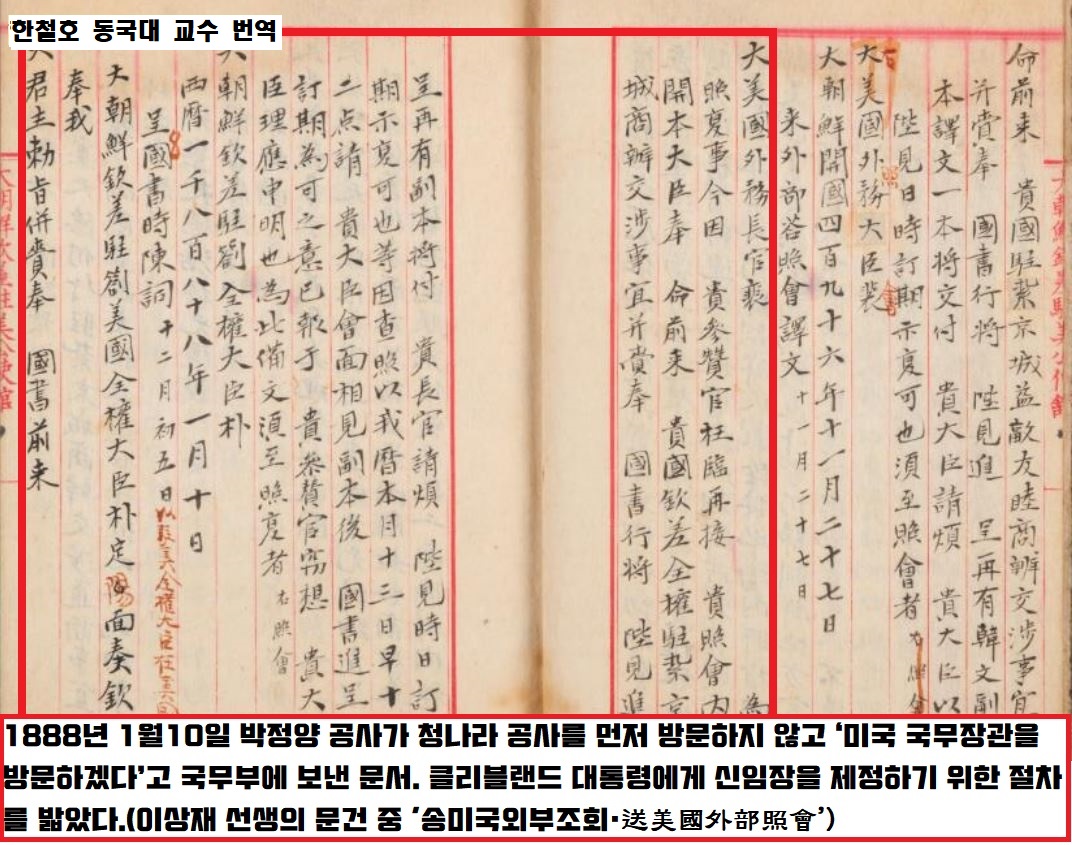 한철호 동국대 교수 번역
命前来 貴國駐紮京城益敵友睦商辨交涉事宜
并賞奉 國書行將 陛見進 呈再有韓文副
本譯文一本將交付 貴大臣請煩 貴大臣以
陛見日時訂期示复可也須至照會者 右照會
大美國外務大臣裴
大朝鮮開國四百九十六年十一月二十七日
来外部答照會譯文 十一月二十七日
大美國外務長官裴 為
照复事今因 貴參贊官枉臨再接 貴照會内
開本大臣奉 命前来 貴國欽差全權駐紮京
城商辦交涉事宜并賞奉 國書行將 陛見進
呈再有副本將付 貴長官請煩 陛見時日訂
期示复可也等因查照以我曆本月十三日早十
二点請 貴大臣會面相見副本後 國書進呈
訂期為可之意已報于 貴參贊官窃想 貴大
臣理應申明也為此備文須至照复者 右照會
大朝鮮欽差駐劄全權大臣朴
西曆一千八百八十八年一月十日
呈國書時陳詞 十二月初五日
大朝鮮欽差駐劄美國全權大臣朴定陽面奏欽
奉我
大君主勅旨併賫奉 國書前来
1888년 1월10일 박정양 공사가 청나라 공사를 먼저 방문하지 않고 ‘미국 국무장관을
방문하겠다’고 국무부에 보낸 문서. 클리블랜드 대통령에게 신임장을 제정하기 위한 절차
를 밟았다.(이상재 선생의 문건 중 '송미국외부조회·送美國外部照會’)